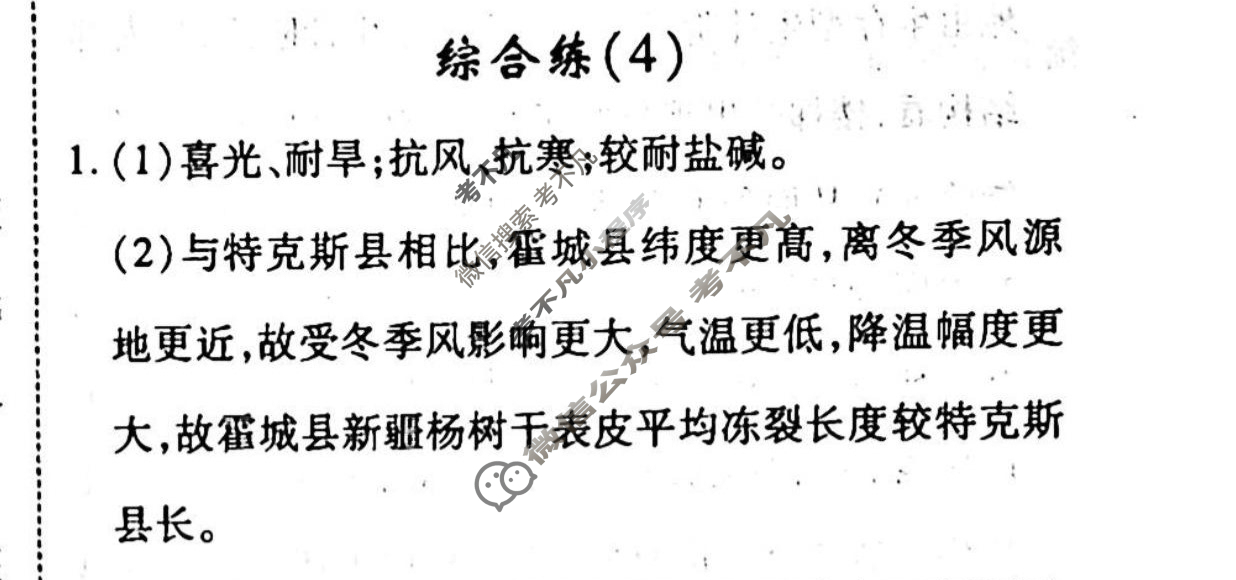 综合练(4)
1.(1)喜光、耐旱;抗风、抗寒;较耐盐碱。
(2)与特克斯县相比,霍城县纬度更高,离冬季风源
地更近,故受冬季风影响更大,气温更低,降温幅度更
大,故霍城县新疆杨树干表皮平均冻裂长度较特克斯
县长。
考不凡
微信搜索 考不凡
考不凡小程序
微信公众号 考不凡